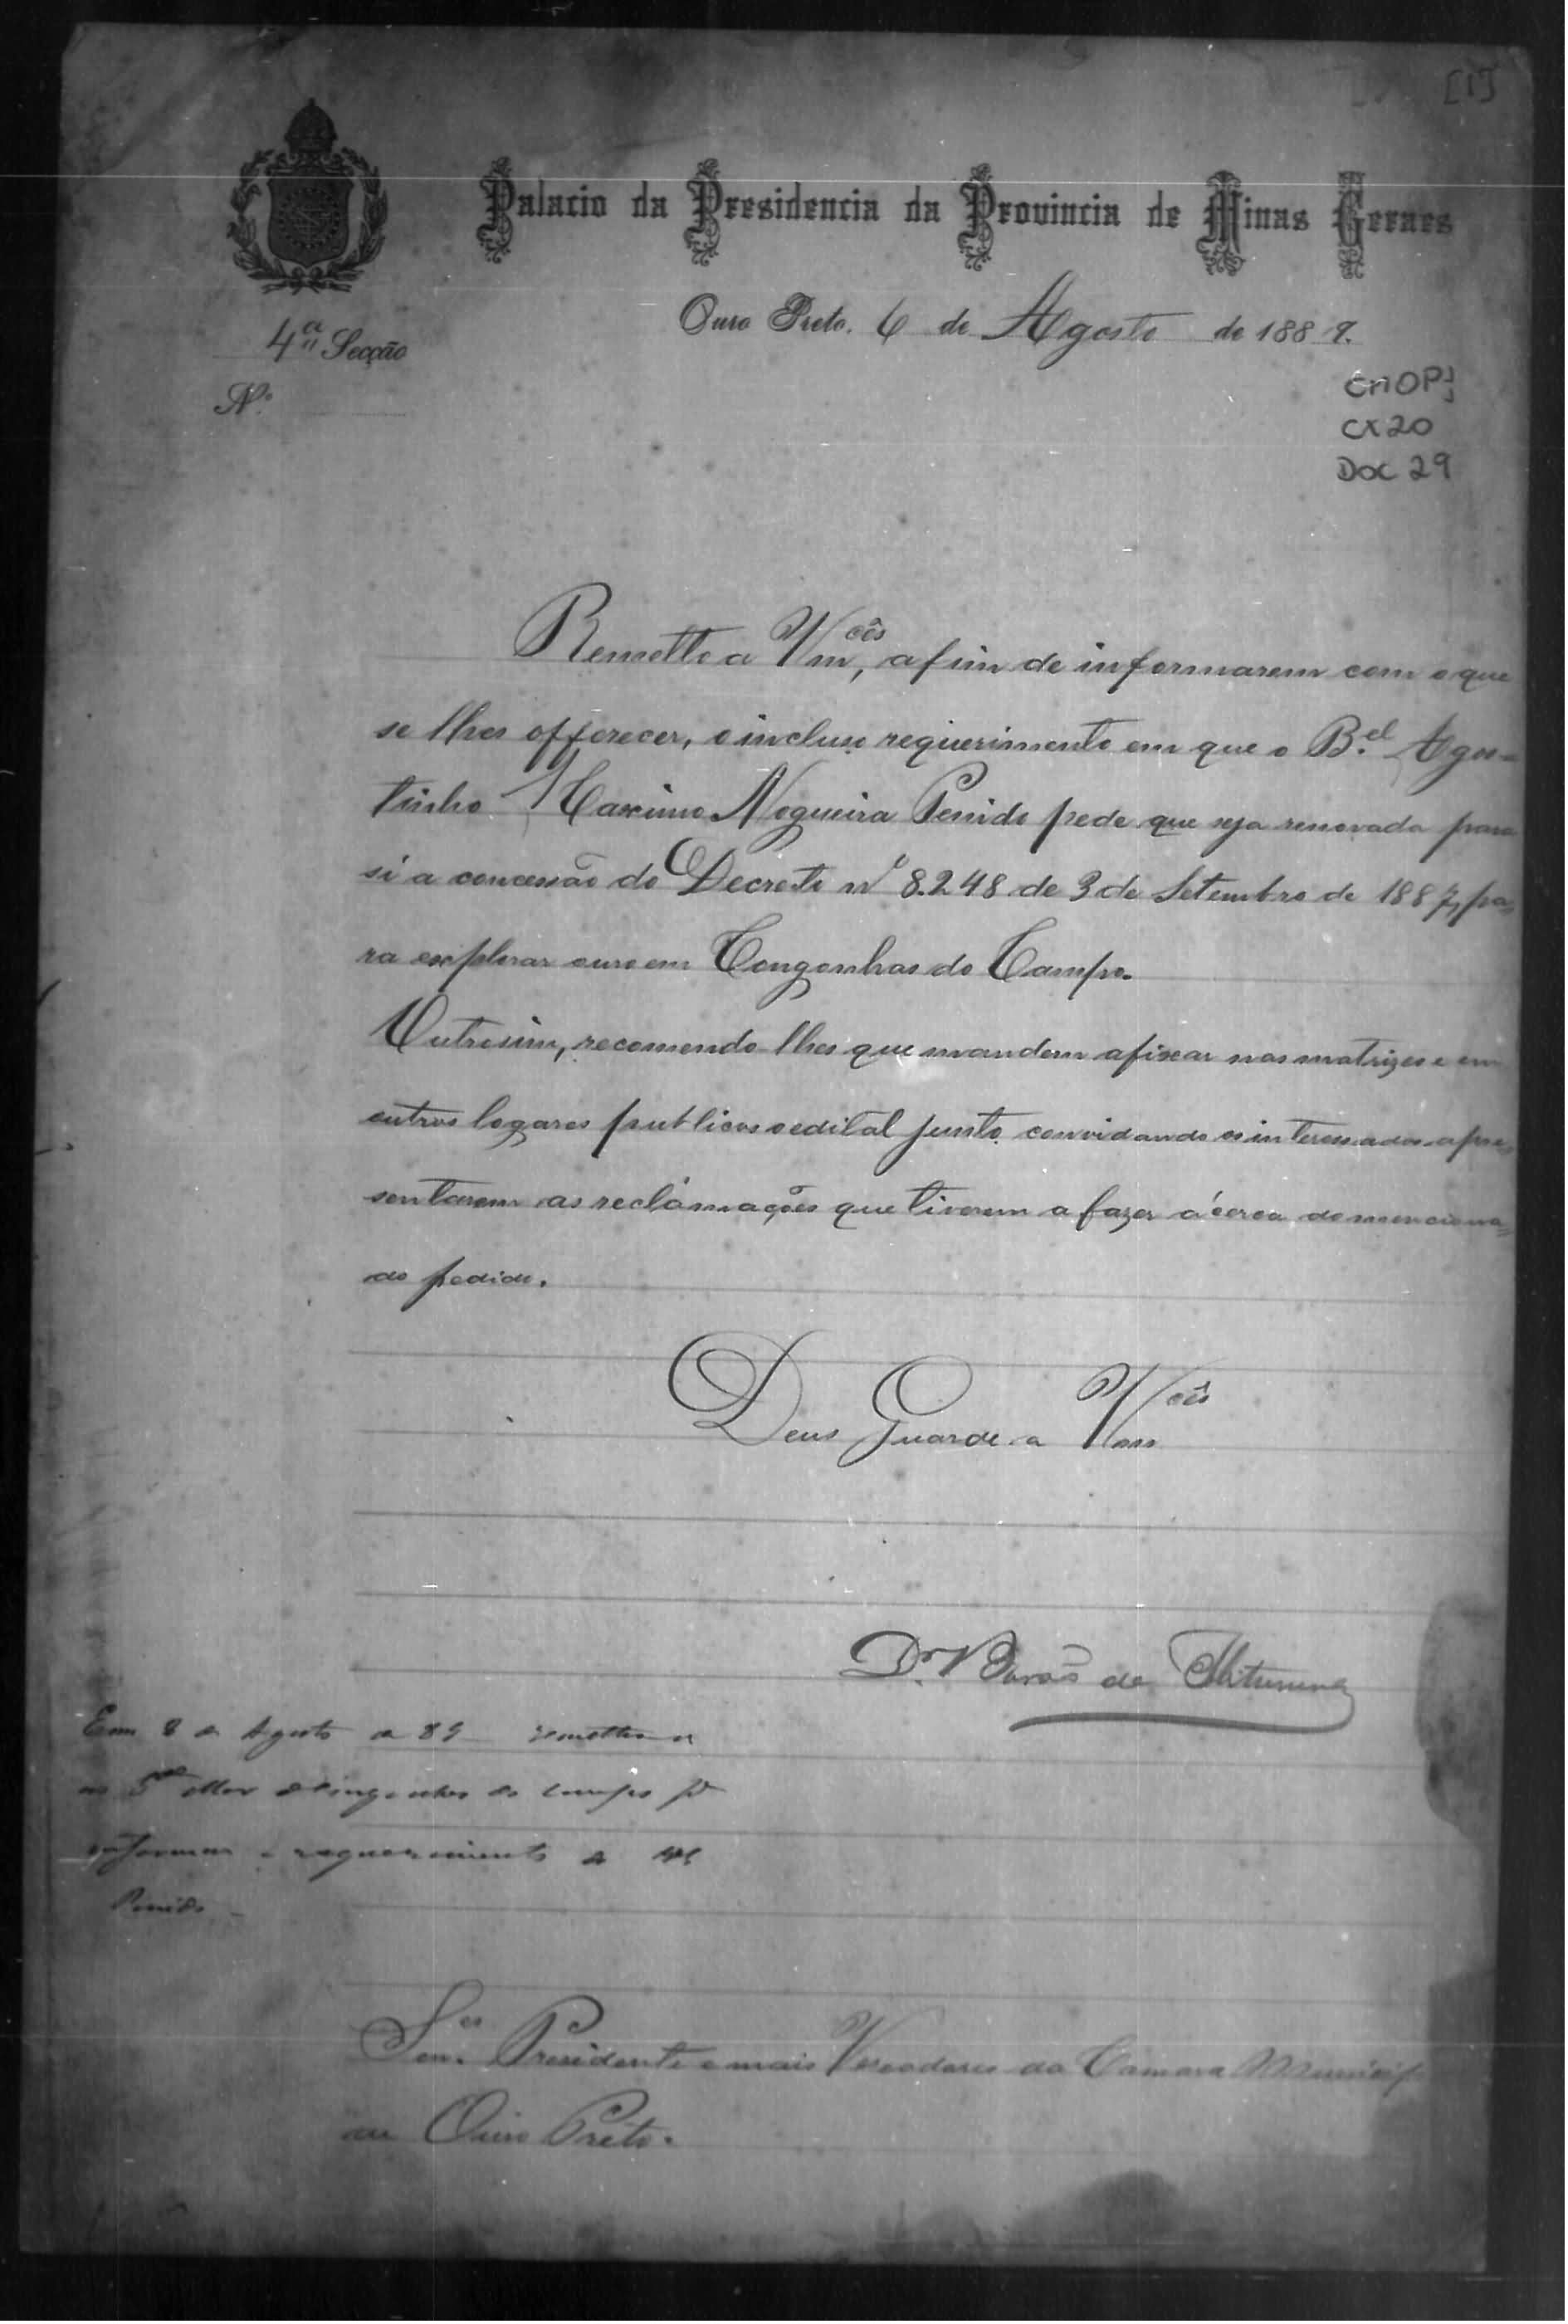 [1]
Palacio da Presidencia da Provincia de Minas Geraes
Ouro Preto. 6 de Agosto de 1889.
4ª Secção
Nº
CMOP
CX20
DOC 29
Remetto a Vm.cês, afim de informarem com o que
se lhes offerecer, o incluso requerimento em que o B.el Agos-
tinho Maximo Nogueira Penido pede que seja renovada para
si a concessão do Decreto nº 8.248 de 3 de Setembro de 1887, pa-
ra explorar ouro em Congonhas do Campo.
Outrosim, recomendo-lhes que mandem afixar nas matrizes e em
outros logares publicos o edital junto convidando os interessados a apre-
sentarem as reclámações que tiverem a fazer ácerca do menciona-
do pedido.
Deus Guarde a Vm.cês
Dr. Barão de Ibituruna
Em 8 de Agosto de 89 remetteu-se
ao Congonhas do Campo pª
informar o requerimento de
Penido
Sen.es Presidente e mais Vereadores da Camara Municipal
de Ouro Preto.